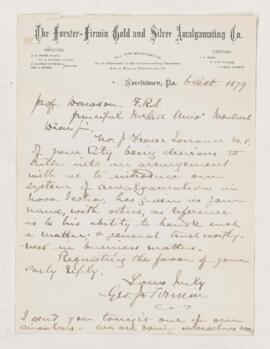 The Forster-Firmin Gold and Silver Amalgamating Co.
DIRECTORS
ALL COMMUNICATIONS
To be addressed to the Corresponding Secretary,
Norristown, Pa. 6 Oct 1879
Prof Dawson F.R.S.
Principal McGill Univ Montreal
Dear Sir,
Mr J Fraser Torrance M.E.
of your City being desirous to
enter into an arrangement
with us to introduce our
system of amalgamation in
Nova Scotia, has given us your
name, with others, as reference
as to his ability to handle such
a matter & general trustworthy-
ness in business matters.
Requesting the favor of your
early reply.
Yours truly
Geo. J. Firmin
I send you tonight one of our
circulars - we are doing ourselves